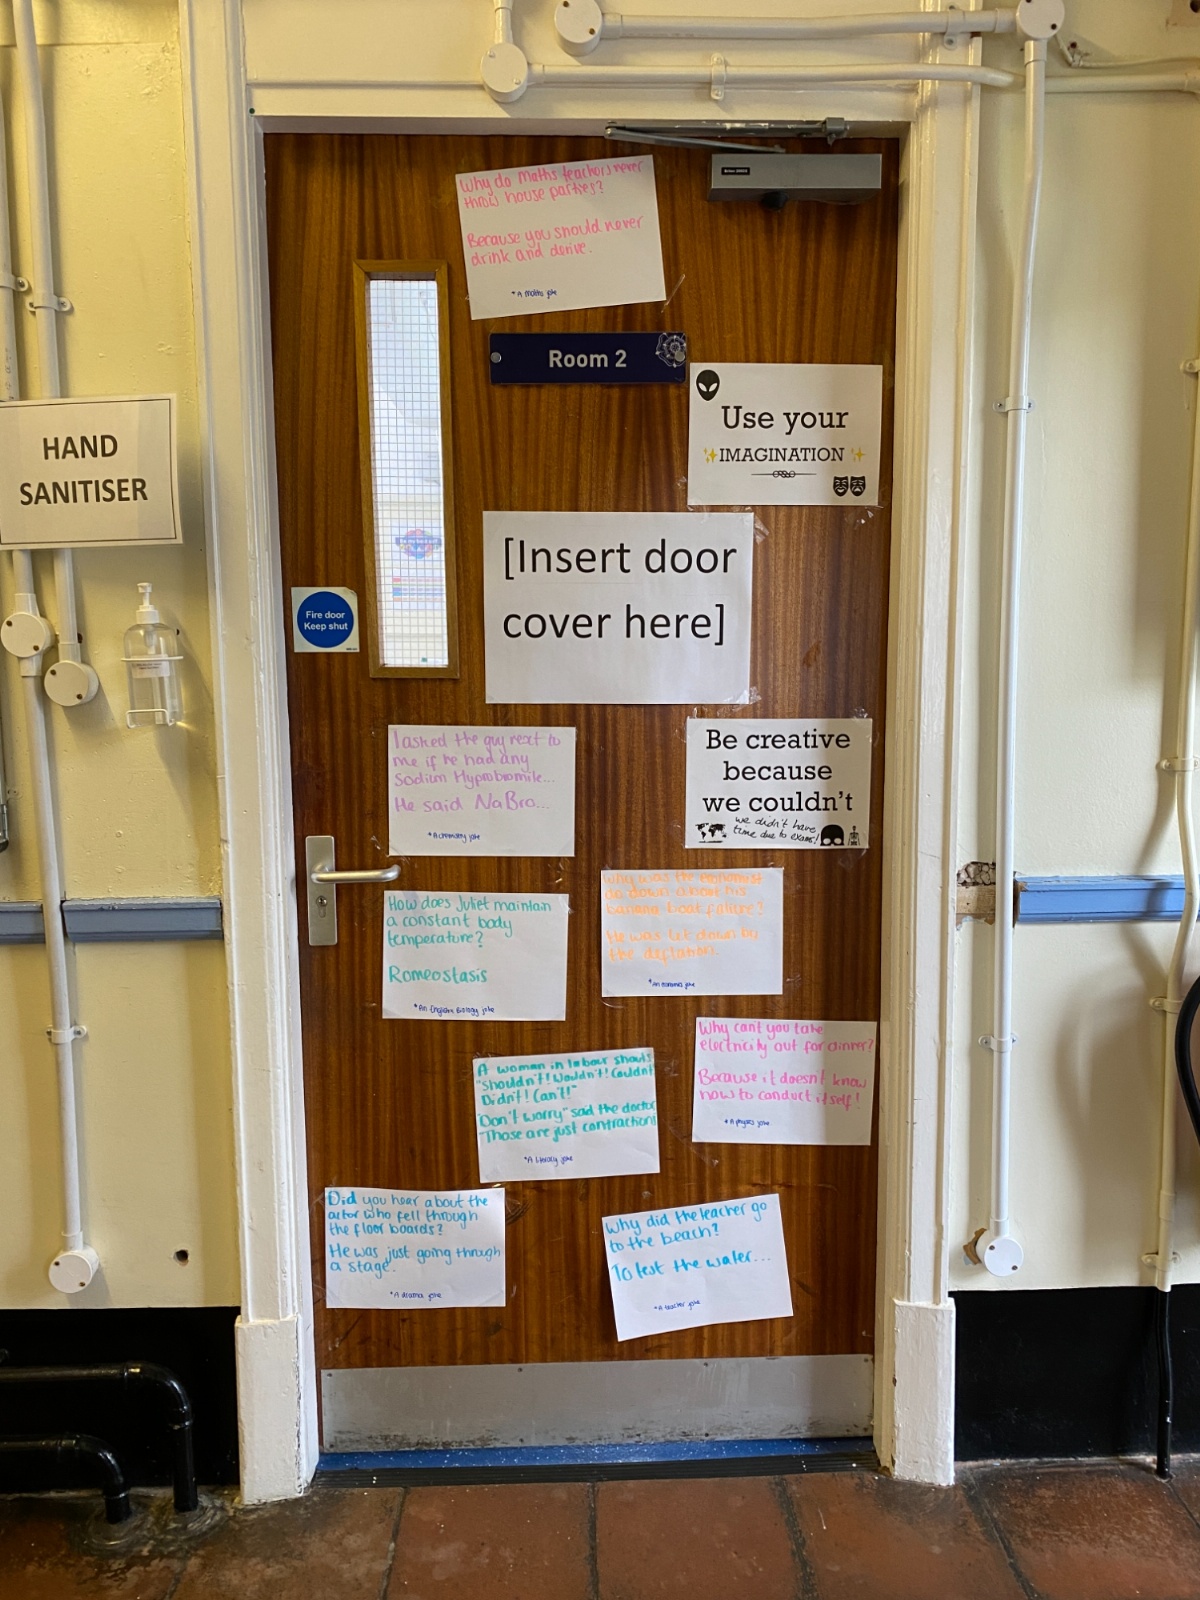 Why do Maths teachers never
throw house parties?
Because you should never
drink and derive.
*A maths joke
Room 2
Use your
✨IMAGINATION✨
HAND
SANITISER
[Insert door
cover here]
Fire door
Keep shut
I asked the guy next to
me if he had any
Sodium Hyprobromile...
He said NaBro...
*A chemistry joke
Be creative
because
we couldn't
we didn't have
time due to exams!
How does Juliet maintain
a constant body
temperature?
Romeostasis
*An English Biology joke
Why was the economist
so down about his
banana boat failure?
He was let down by
the deflation.
*An economics joke
Why can't you take
electricity out for dinner?
Because it doesn't know
how to conduct itself!
*A physics joke
A woman in labour shouts
"Shouldn't! Wouldn't! Couldn't
Didn't! Can't!"
"Don't worry" said the doctor
"Those are just contractions
*A literacy joke
Did you hear about the
actor who fell through
the floor boards?
He was just going through
a stage.
*A drama joke
Why did the teacher go
to the beach?
To test the water...
*A teacher joke